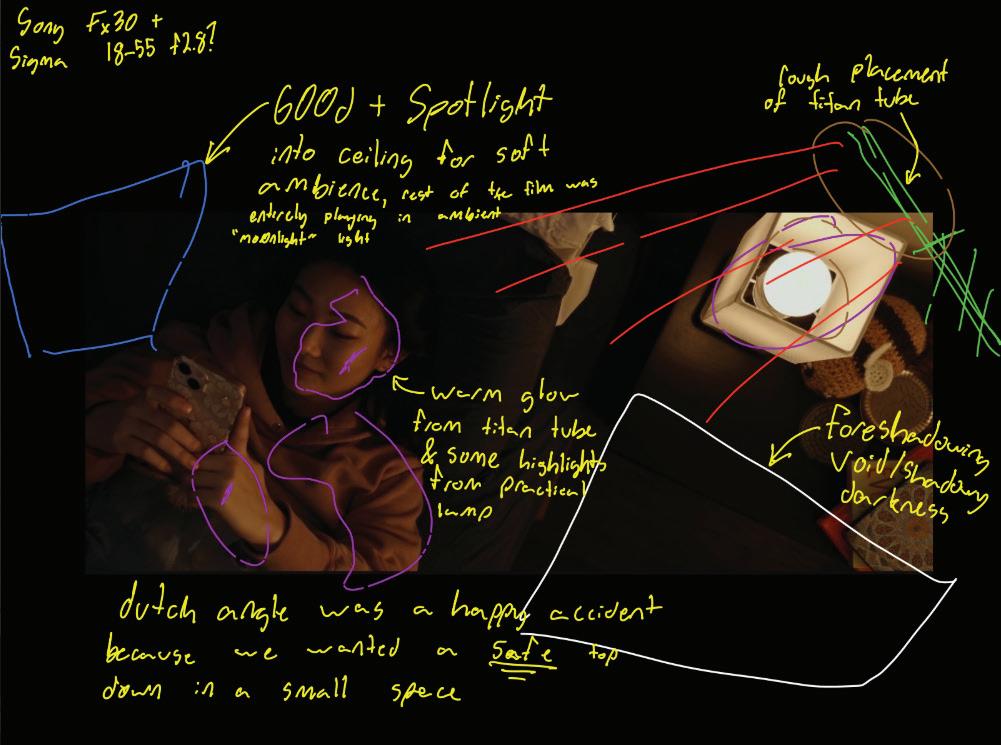 Sony Fx30 +
Sigma 18-55 f2.8?
600d + Spotlight
into ceiling for soft
ambience, rest of the film was
entirely playing in ambient
"moonlight" light
rough placement
of titan tube
warm glow
from titan tube
& some highlights
from practical
lamp
foreshadowing
void/shadowy
darkness
dutch angle was a happy accident
because we wanted a safe top
down in a small space